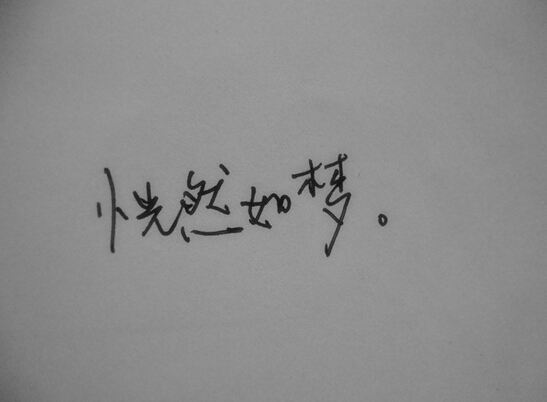 恍然如梦。